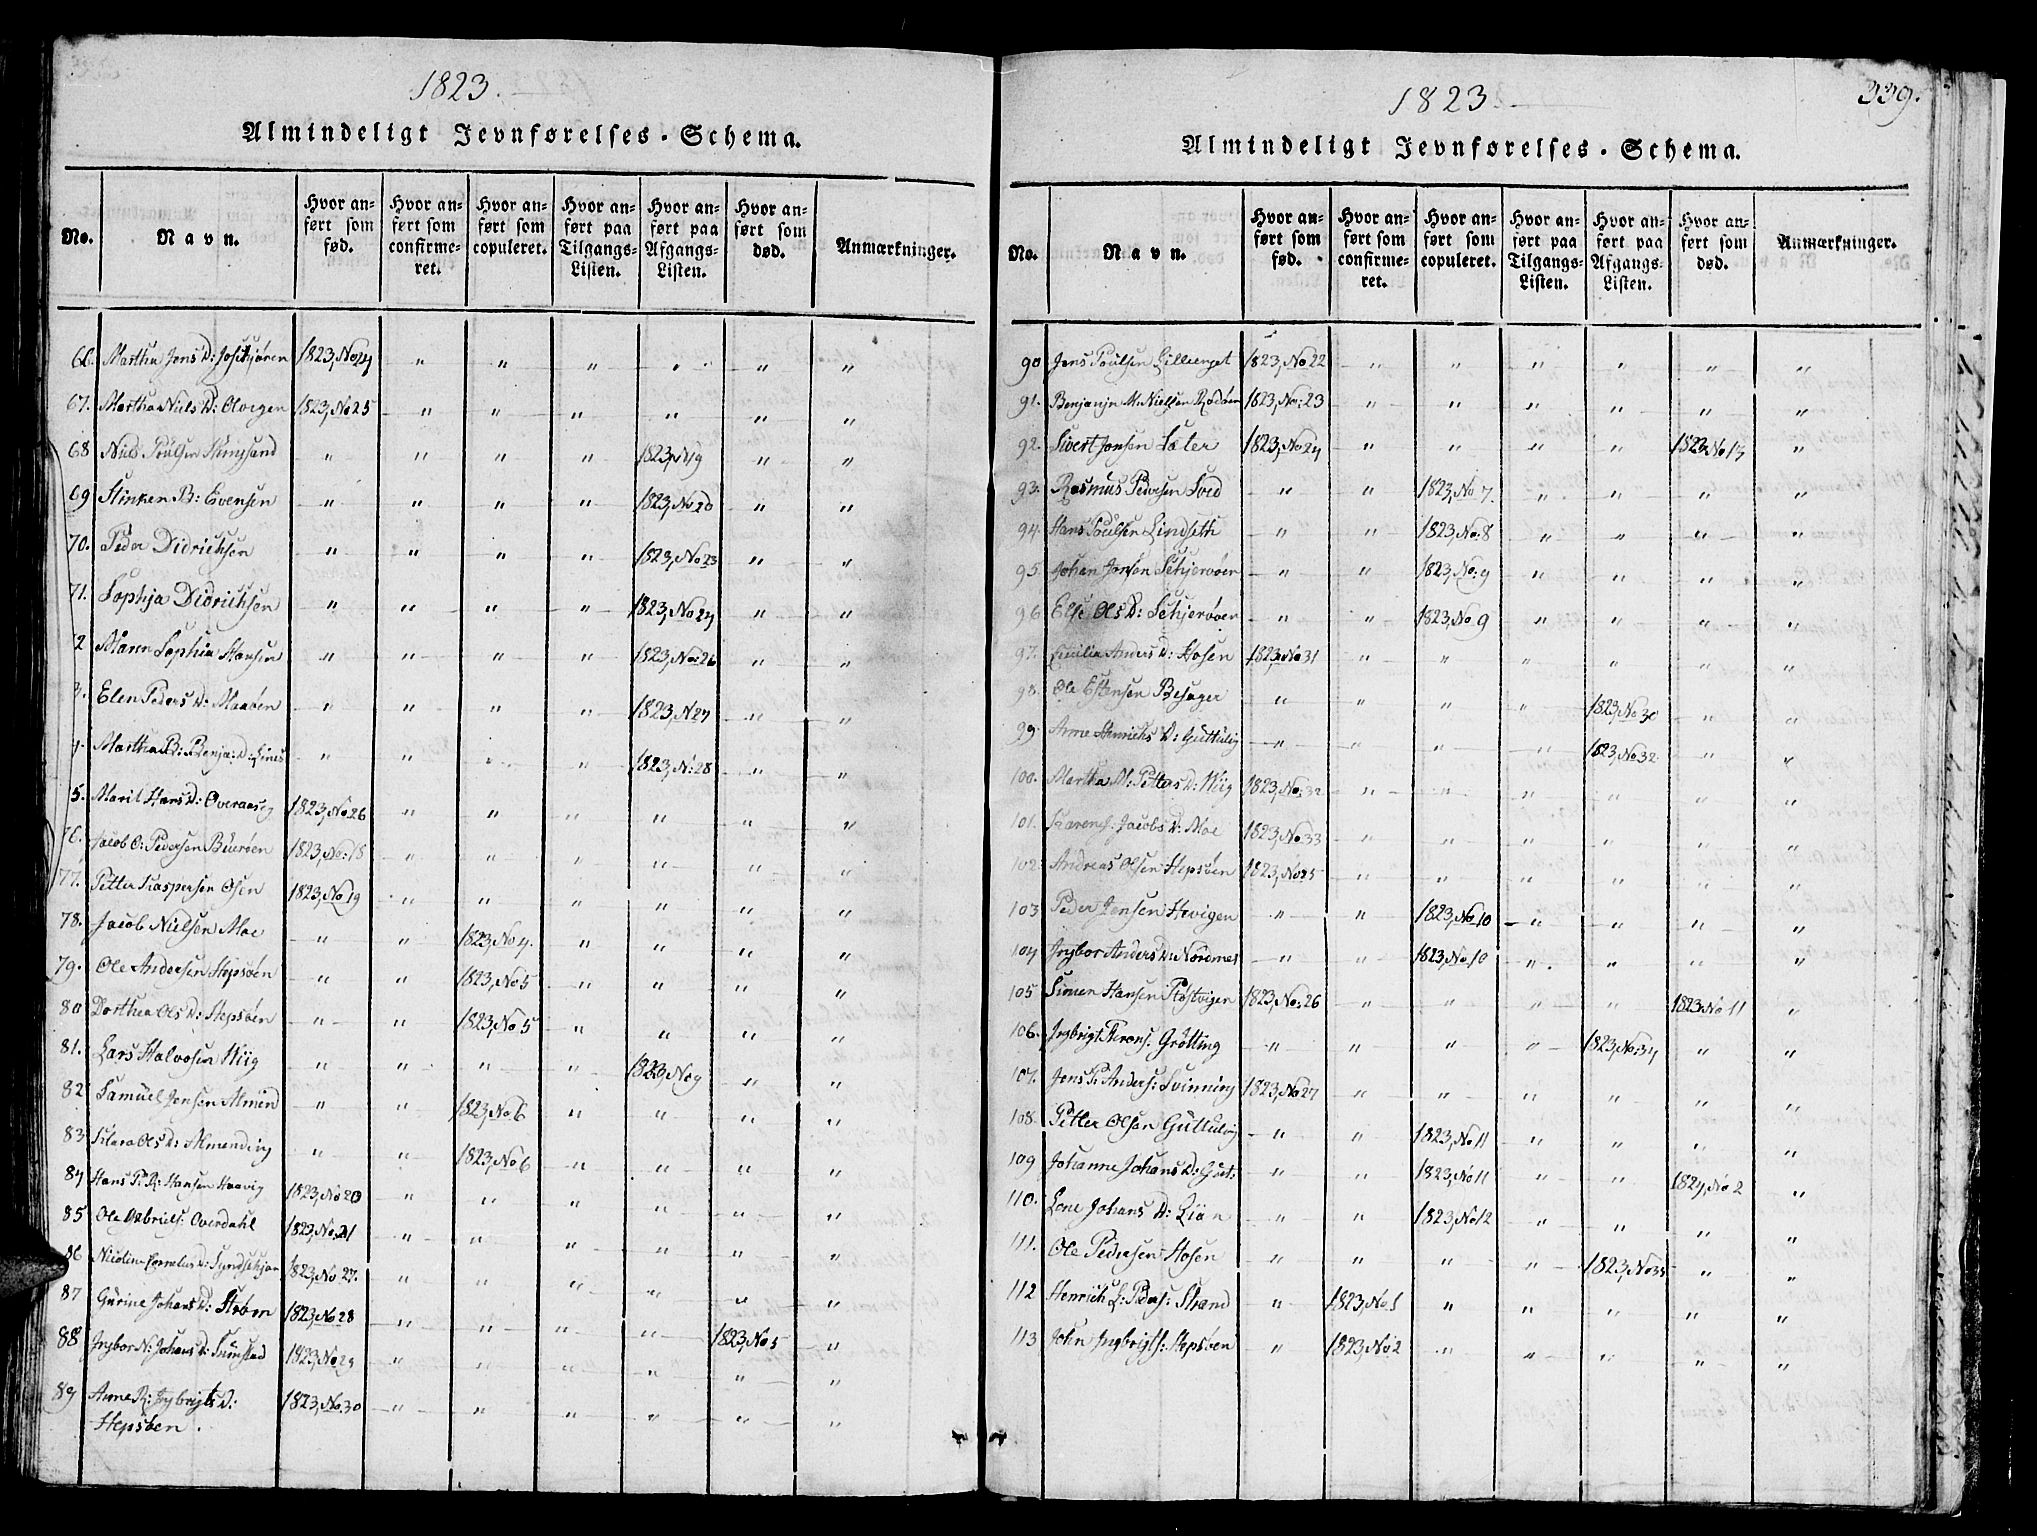 1823.
Almindeligt Jevnførelses-Schema.
No. Navn. Hvor anført som fød. Hvor anført som confirmeret. Hvor anført som copuleret. Hvor anført paa Tilgangs-Listen. Hvor anført paa Afgangs-Listen. Hvor anført som død. Anmærkninger.
66. Martha Jens D: 1823, No 24 " " " " " "
67. Martha Niels D: 1823, No 25 " " " " " "
68 Niels Poulsen " " " " 1823, N 19 " "
69 B: Evensen " " " " 1823, No 20 " "
70. Peder Didrichsen " " " " 1823, No 23 " "
71. Sophja Didrichsen " " " " 1823, No 24 " "
2 Maren Sophia Hansen " " " " 1823, No: 26 " "
3. Elen Peders D: " " " " 1823, N 27 " "
4. Martha B: Benja: D: " " " " 1823, N: 28 " "
5. Marit Hans D: 1823, No 26 " " " " " "
76. Jacob O: Pedersen 1823, No: 18 " " " " " "
77. Petter Kaspersen Osen 1823, No 19 " " " " " "
78. Jacob Nielsen Moe " " 1823, No 4. " " " "
79. Ole Andersen Hepsøen " " 1823, No 5 " " " "
80 Dorthea Ols D: Hepsøen " " 1823, No 5 " " " "
81. Lars Halvosen Wiig " " " " 1823 No 9 " "
82 Samuel Jensen Almend " " 1823, No 6 " " " "
83 Ols D: Almending " " 1823, No 6 " " " "
84 Hans P: R: Hansen Haavig 1823, No 20 " " " " " "
85 Ole Gabriels: Overdahl 1823, No 21 " " " " " "
86 Nicoline Cornelius D: 1823, No 27. " " " " " "
87 Gurine Johans D: 1823, No 28 " " " " 1823, No 5 "
88 Ingbor N: Johans D: Sumstad 1823, No 29 " " " " " "
89 Anne R: Ingbrigts D: 1823, No 30 " " " " " "
Hepsøen.
1823
339.
Almindeligt Jevnførelses-Schema.
No. Navn. Hvor anført som fød. Hvor anført som confirmeret. Hvor anført som copuleret. Hvor anført paa Tilgangs-Listen. Hvor anført paa Afgangs-Listen. Hvor anført som død. Anmærkninger.
90 Jens Poulsen 1823, No 22 " " " " " "
91. Benjamin M: Nielsen 1823, No: 23 " " " " " "
92. Sivert Jonsen Sæter 1823, No 24 " " " " 1823 No 13 "
93. Rasmus Pedersen " " 1823, No 7. " " " "
94. Hans Poulsen Lindseth " " 1823, No: 8 " " " "
95. Johan Jensen Schjervøen " " 1823, No: 9 " " " "
96 Else Ols D: Schjerøøen " " 1823, No 9 " " " "
97. Cecilia Anders D: Hosen 1823, No 31 " " " " " "
98. Ole Estensen Besager " " " " 1823, No 30 " "
99. Anne Henrichs D: Guttulvig " " " " 1823, No 32 " "
100. Martha M: Petters D: Wiig 1823, No: 32 " " " " " "
101. Jacobs D: Moe 1823, No 33 " " " " " "
102 Andreas Olsen Hepsøen 1823, No 25 " " " " " "
103 Peder Jensen Hovigen " " 1823, No 10 " " " "
104 Ingbor Anders D: Nordmes " " 1823, No 10 " " " "
105 Simen Hansen 1823, No: 26 " " " " 1823 No 11 "
106. Ingbrigt Grøtting " " " " 1823, No: 34 " "
107. Jens P: Anders: Svinning 1823, No 27 " " " " " "
108. Petter Olsen Guttulvig " " 1823, No 11 " " " "
109 Johanne Johans D: Gutt: " " 1823, No 11 " " 1824, No 2 "
110. Lene Johans D: " " 1823, No 12 " " " "
111. Ole Pedersen Hosen " " " " 1823, No 35 " "
112 Henrich L: Peders: Strand " 1823, No 1 " " " " "
113 John Ingbrigts: Hepsøen " 1823, No: 2 " " " " "